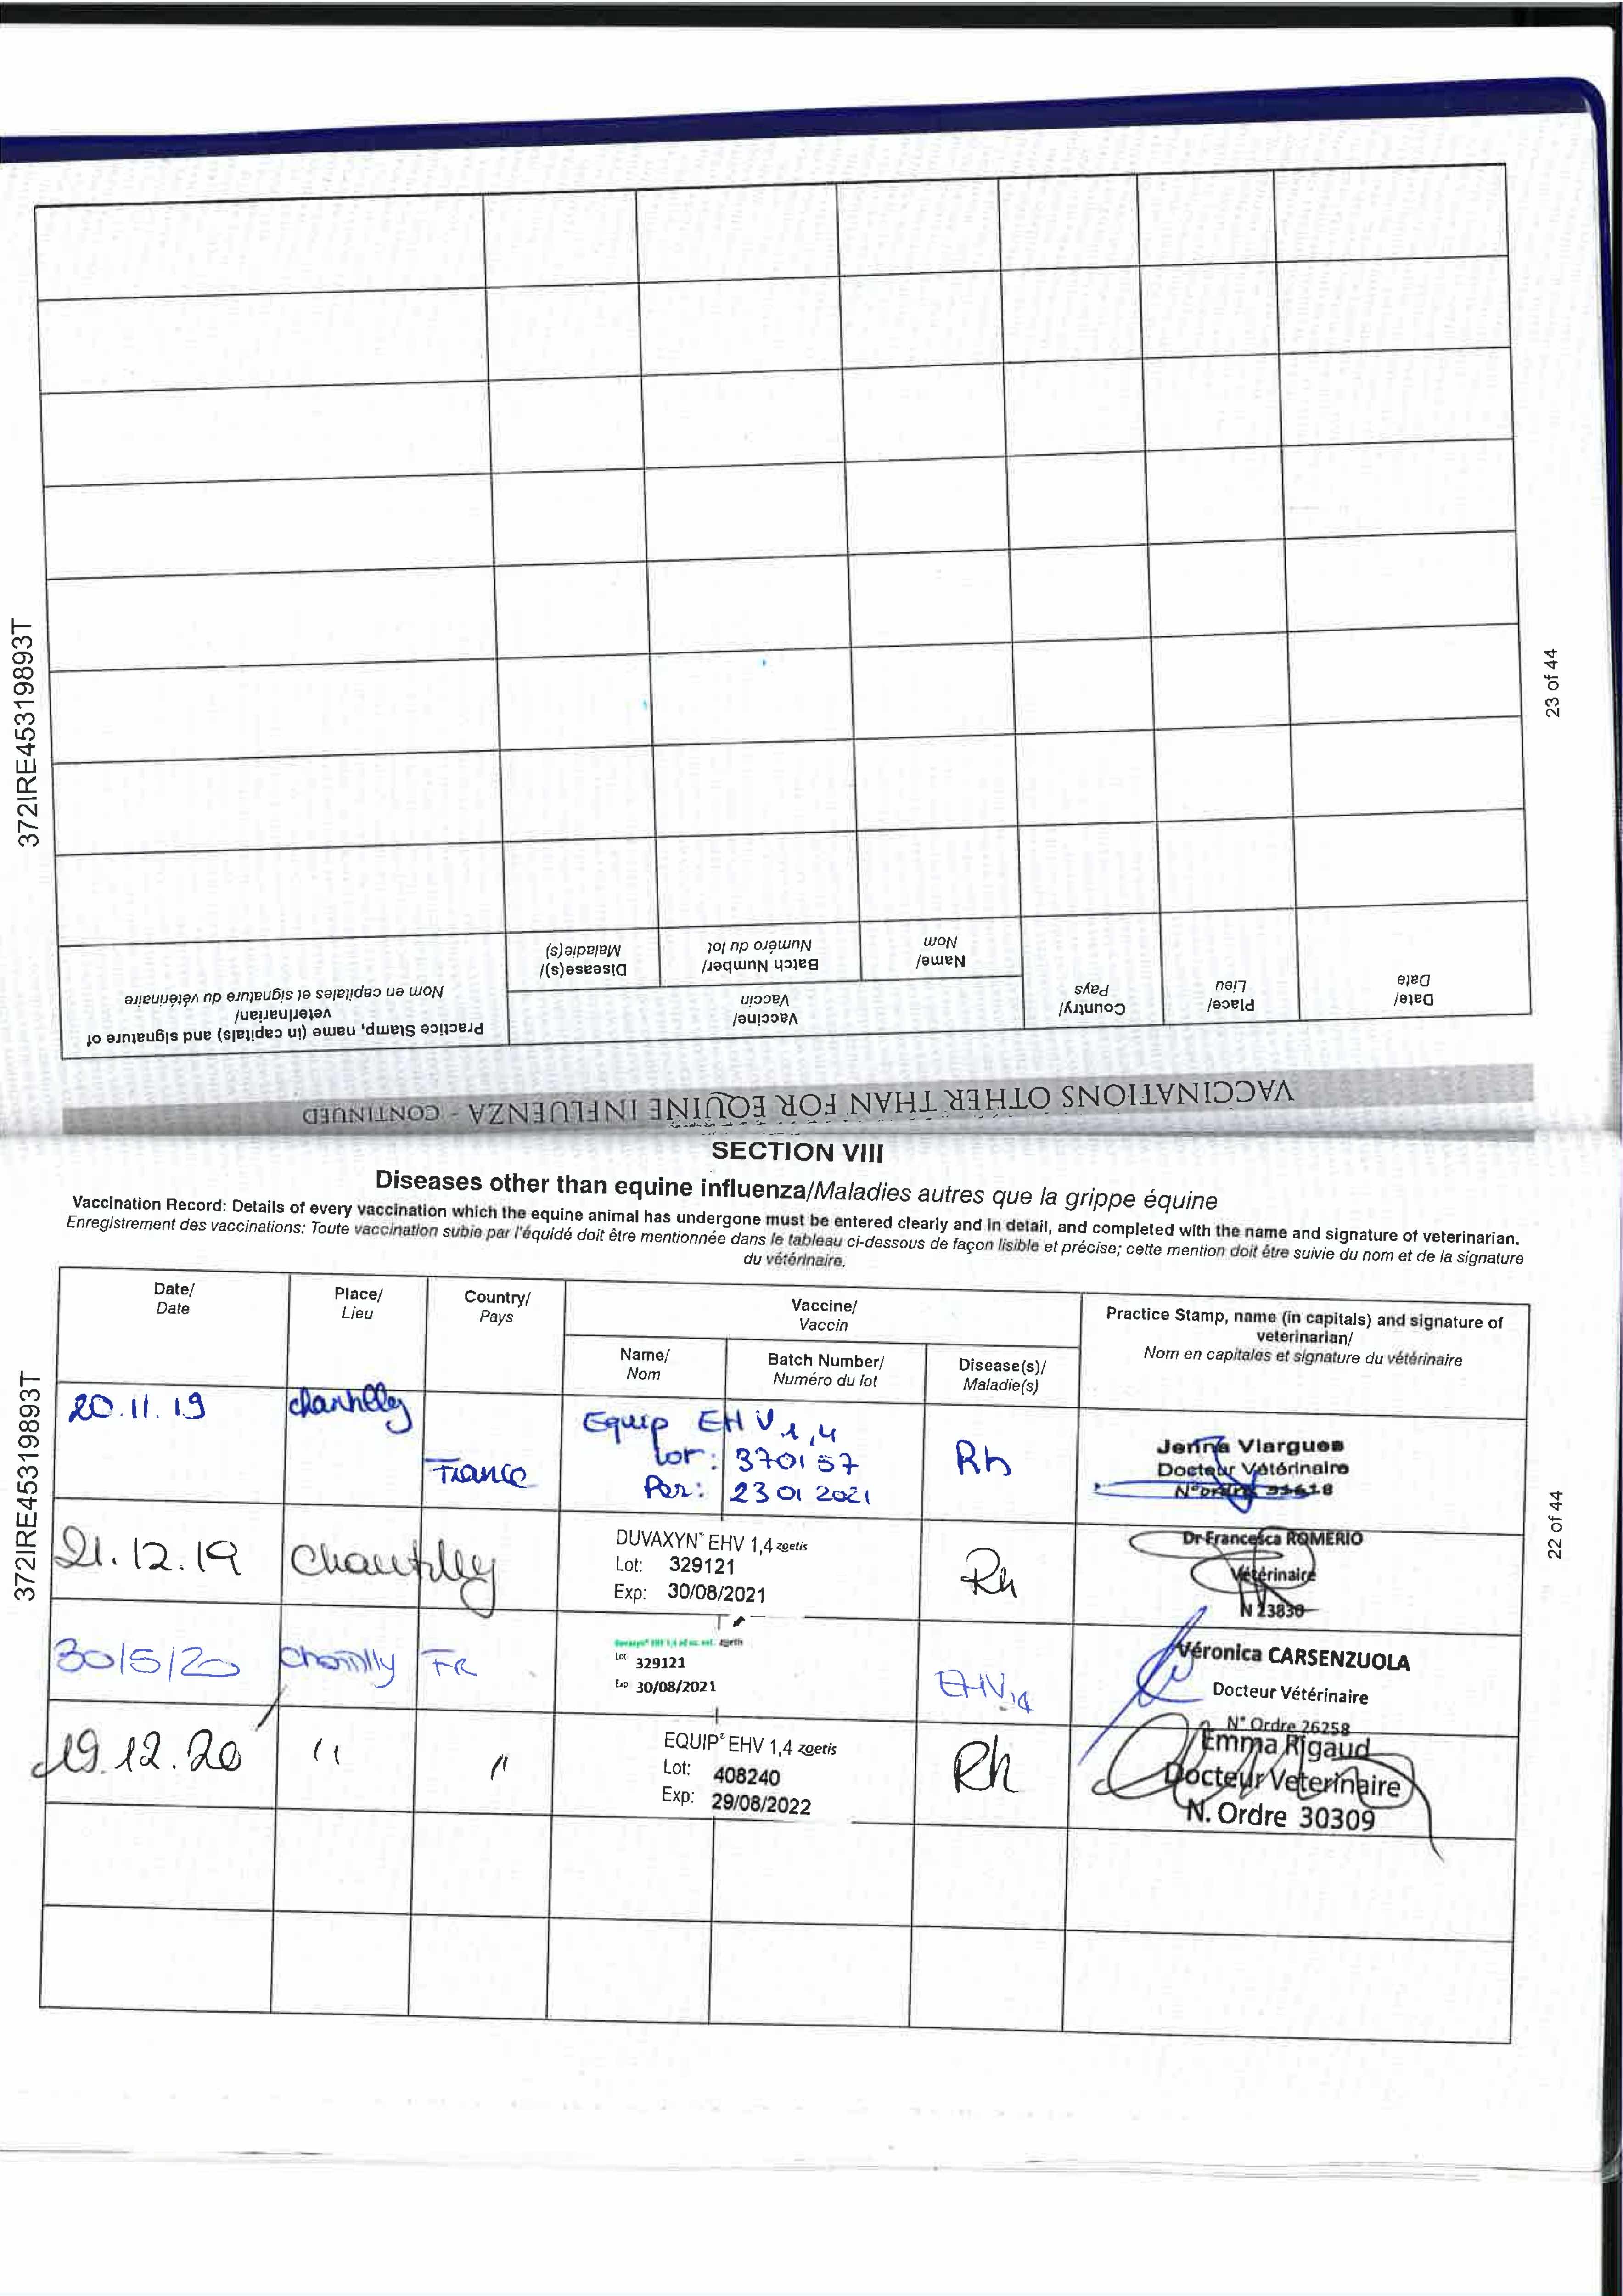 372IRE45319893T
23 of 44
VACCINATIONS OTHER THAN FOR EQUINE INFLUENZA - CONTINUED
Date/
Date
Place/
Lieu
Country/
Pays
Vaccine/
Vaccin
Name/
Nom
Batch Number/
Numéro du lot
Disease(s)/
Maladie(s)
Practice Stamp, name (in capitals) and signature of
veterinarian/
Nom en capitales et signature du vétérinaire
SECTION VIII
Diseases other than equine influenza/Maladies autres que la grippe équine
Vaccination Record: Details of every vaccination which the equine animal has undergone must be entered clearly and in detail, and completed with the name and signature of veterinarian.
Enregistrement des vaccinations: Toute vaccination subie par l'équidé doit être mentionnée dans le tableau ci-dessous de façon lisible et précise; cette mention doit être suivie du nom et de la signature
du vétérinaire.
372IRE45319893T
22 of 44
Date/
Date
Place/
Lieu
Country/
Pays
Vaccine/
Vaccin
Name/
Nom
Batch Number/
Numéro du lot
Disease(s)/
Maladie(s)
Practice Stamp, name (in capitals) and signature of
veterinarian/
Nom en capitales et signature du vétérinaire
20.11.19
Chantilly
France
Equip EHV 1,4
Lot: 370157
Per: 23 01 2021
Rh
Jenna Viargues
Docteur Vétérinaire
N°ordre
21.12.19
Chantilly
DUVAXYN® EHV 1,4 zoetis
Lot: 329121
Exp: 30/08/2021
Rh
Dr Francesca ROMERIO
Vétérinaire
N 23830
30/5/20
Chantilly
FR
Duvaxyn® EHV 1,4 zoetis
Lot 329121
Exp 30/08/2021
EHV 1,4
Véronica CARSENZUOLA
Docteur Vétérinaire
N° Ordre 26258
19.12.20
"
"
EQUIP® EHV 1,4 zoetis
Lot: 408240
Exp: 29/08/2022
Rh
Emma Rigaud
Docteur Veterinaire
N. Ordre 30309